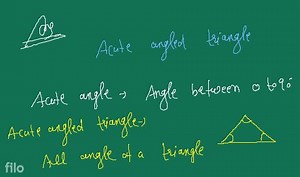 Acute angled triangle
Acute angle → Angle between 0 to 90
Acute angled triangle →
All angle of a triangle
filo